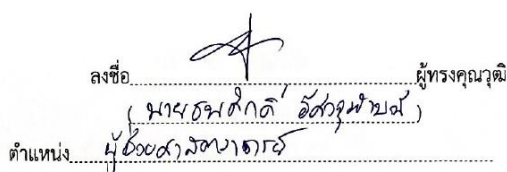 ลงชื่อ ผู้ทรงคุณวุฒิ
(นายธนศักดิ์)
ตำแหน่ง ผู้ช่วยศาสตราจารย์